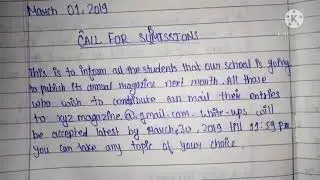 March 01, 2019
CALL FOR SUMISSIONS
This is to inform all the students that our school is going
to publish its annual magazine next month. All those
who wish to contribute can mail their entries
to xyz magazine.@.gmail.com. write-ups will
be accepted latest by March,20, 2019 till 11:59 pm.
you can take any topic of your choice.